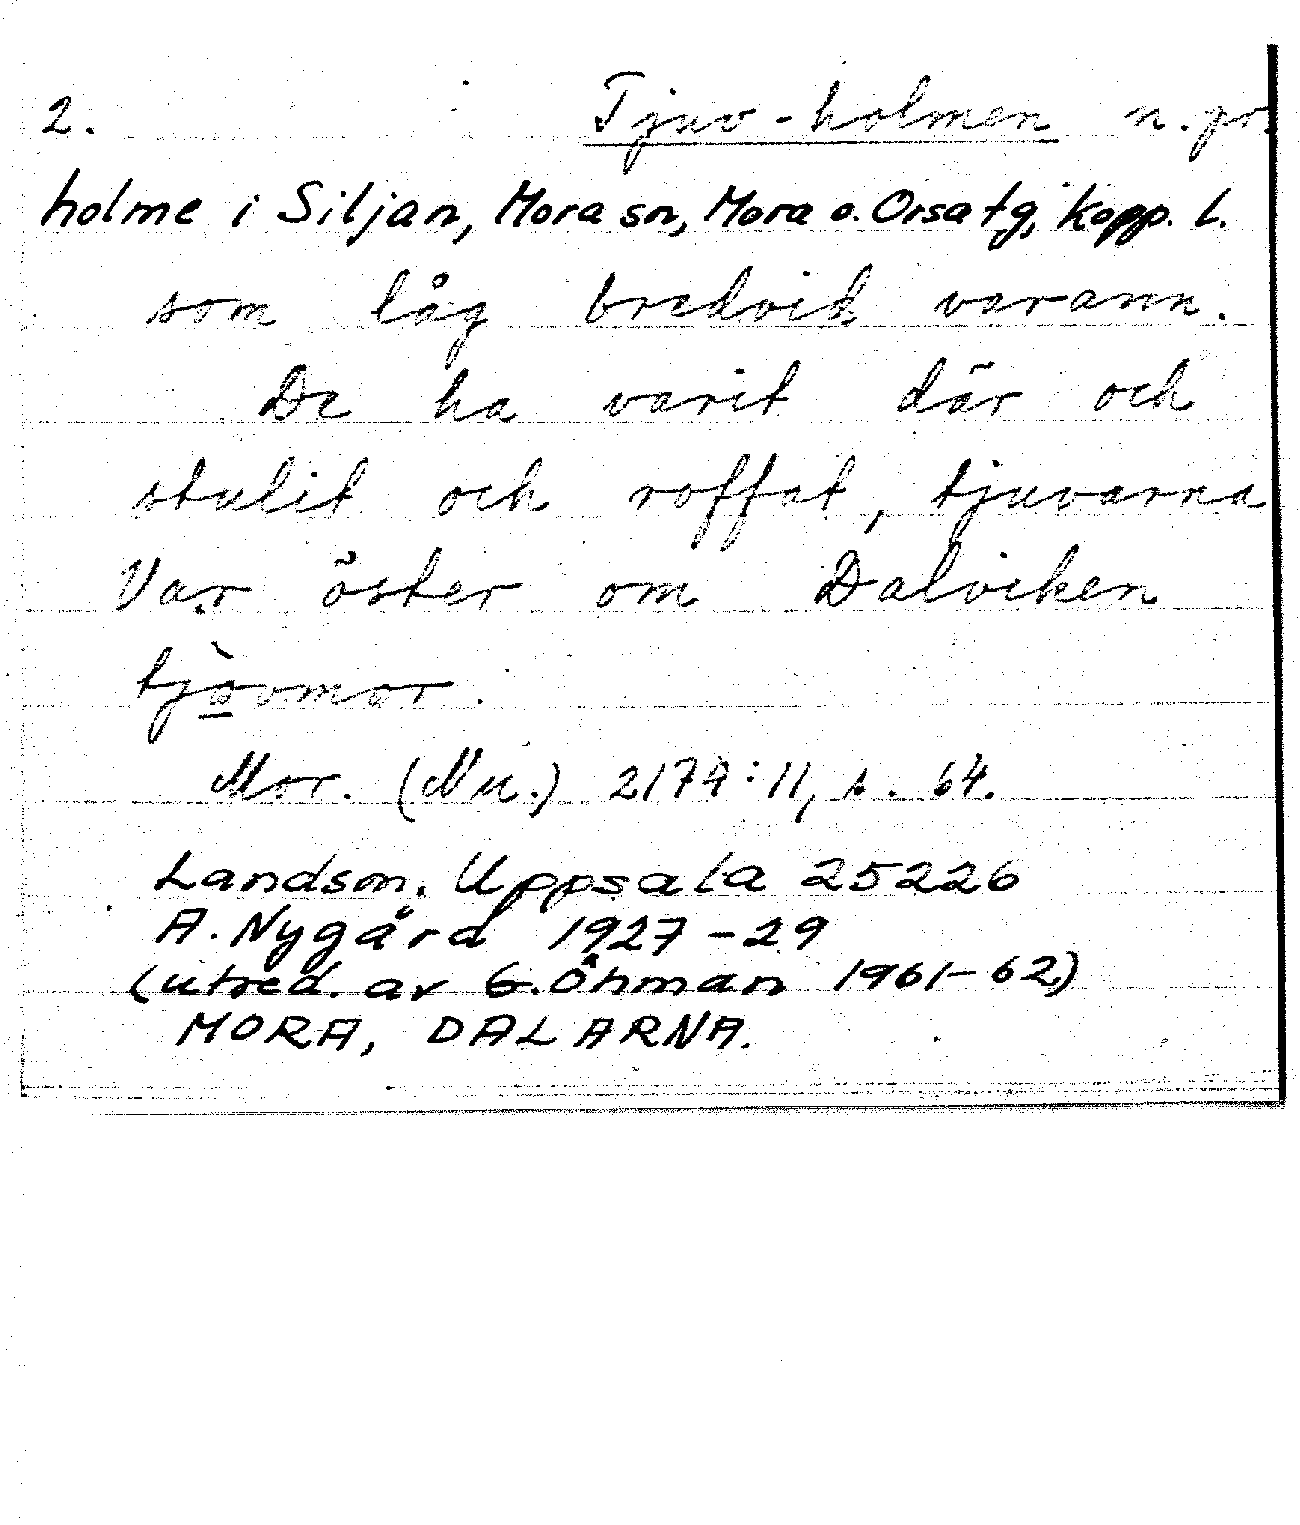 2. Tjuv-holmen n. pr.
holme i Siljan, Mora sn, Mora o. Orsa tg, Kopp. l.
som låg bredvid varann.
De ha varit där och
stulit och roffat, tjuvarna
Var öster om Dalviken
tjòvmor.
Mor. (Nu.) 2174:11, s. 64.
Landsm. Uppsala 25226
A. Nygård 1927-29
(utred. av G. Öhman 1961-62)
MORA, DALARNA.